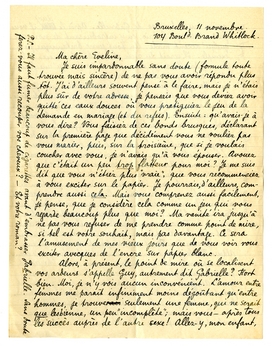 Bruxelles, 11 novembre
104 Boulᵈ. Brand Whitlock.
Ma chère Eveline,
Je suis impardonnable sans doute (formule toute
trouvée mais sincère) de ne pas vous avoir répondu plus
tôt. J'ai d'ailleurs souvent pensé à le faire, mais je n'étais
plus sûr de votre adresse, je pensais que vous deviez avoir
quitté ces eaux douces où vous pratiquiez le jeu de la
demande en mariage (et du refus). Ensuite: qu'avais-je à
vous dire? Vous faisiez de ces bonds brusques, déclarant
sur la première page que décidément vous ne vouliez pas
vous marier, puis, sur la troisième, que si je voulais
coucher avec vous, je n'avais qu'à vous épouser. Avouez
que c'était un peu trop. Je me suis
dit que vous n'étiez plus vraie, que vous recommenciez
à vous exciter sur le papier. Je pourrais, d'ailleurs, com-
prendre aussi cela. Mais vous comprenez aussi facilement,
je pense, que je considère cela comme un jeu qui vous
regarde beaucoup plus que moi? Ma vanité ira jusqu'à
ne pas vous refuser de me prendre comme point de mire,
si tel est votre souhait, mais pas davantage. Ce sera
l'amusement de mes vieux jours que de vous voir vous
exciter avecques de l'encre sur papier blanc.
Alors, à présent, le point de mire où se localisent
vos ardeurs s'appelle Guy, autrement dit Gabrielle? Fort
bien. Moi, je n'y vois aucun inconvénient. L'amour entre
femmes me paraît infiniment moins dégoûtant qu'entre
hommes, je trouverais seulement une femme, que ne serait
que lesbienne, un peu incomplète; mais vous — après tous
les succès auprès de l'autre sexe! Allez-y, mon enfant,